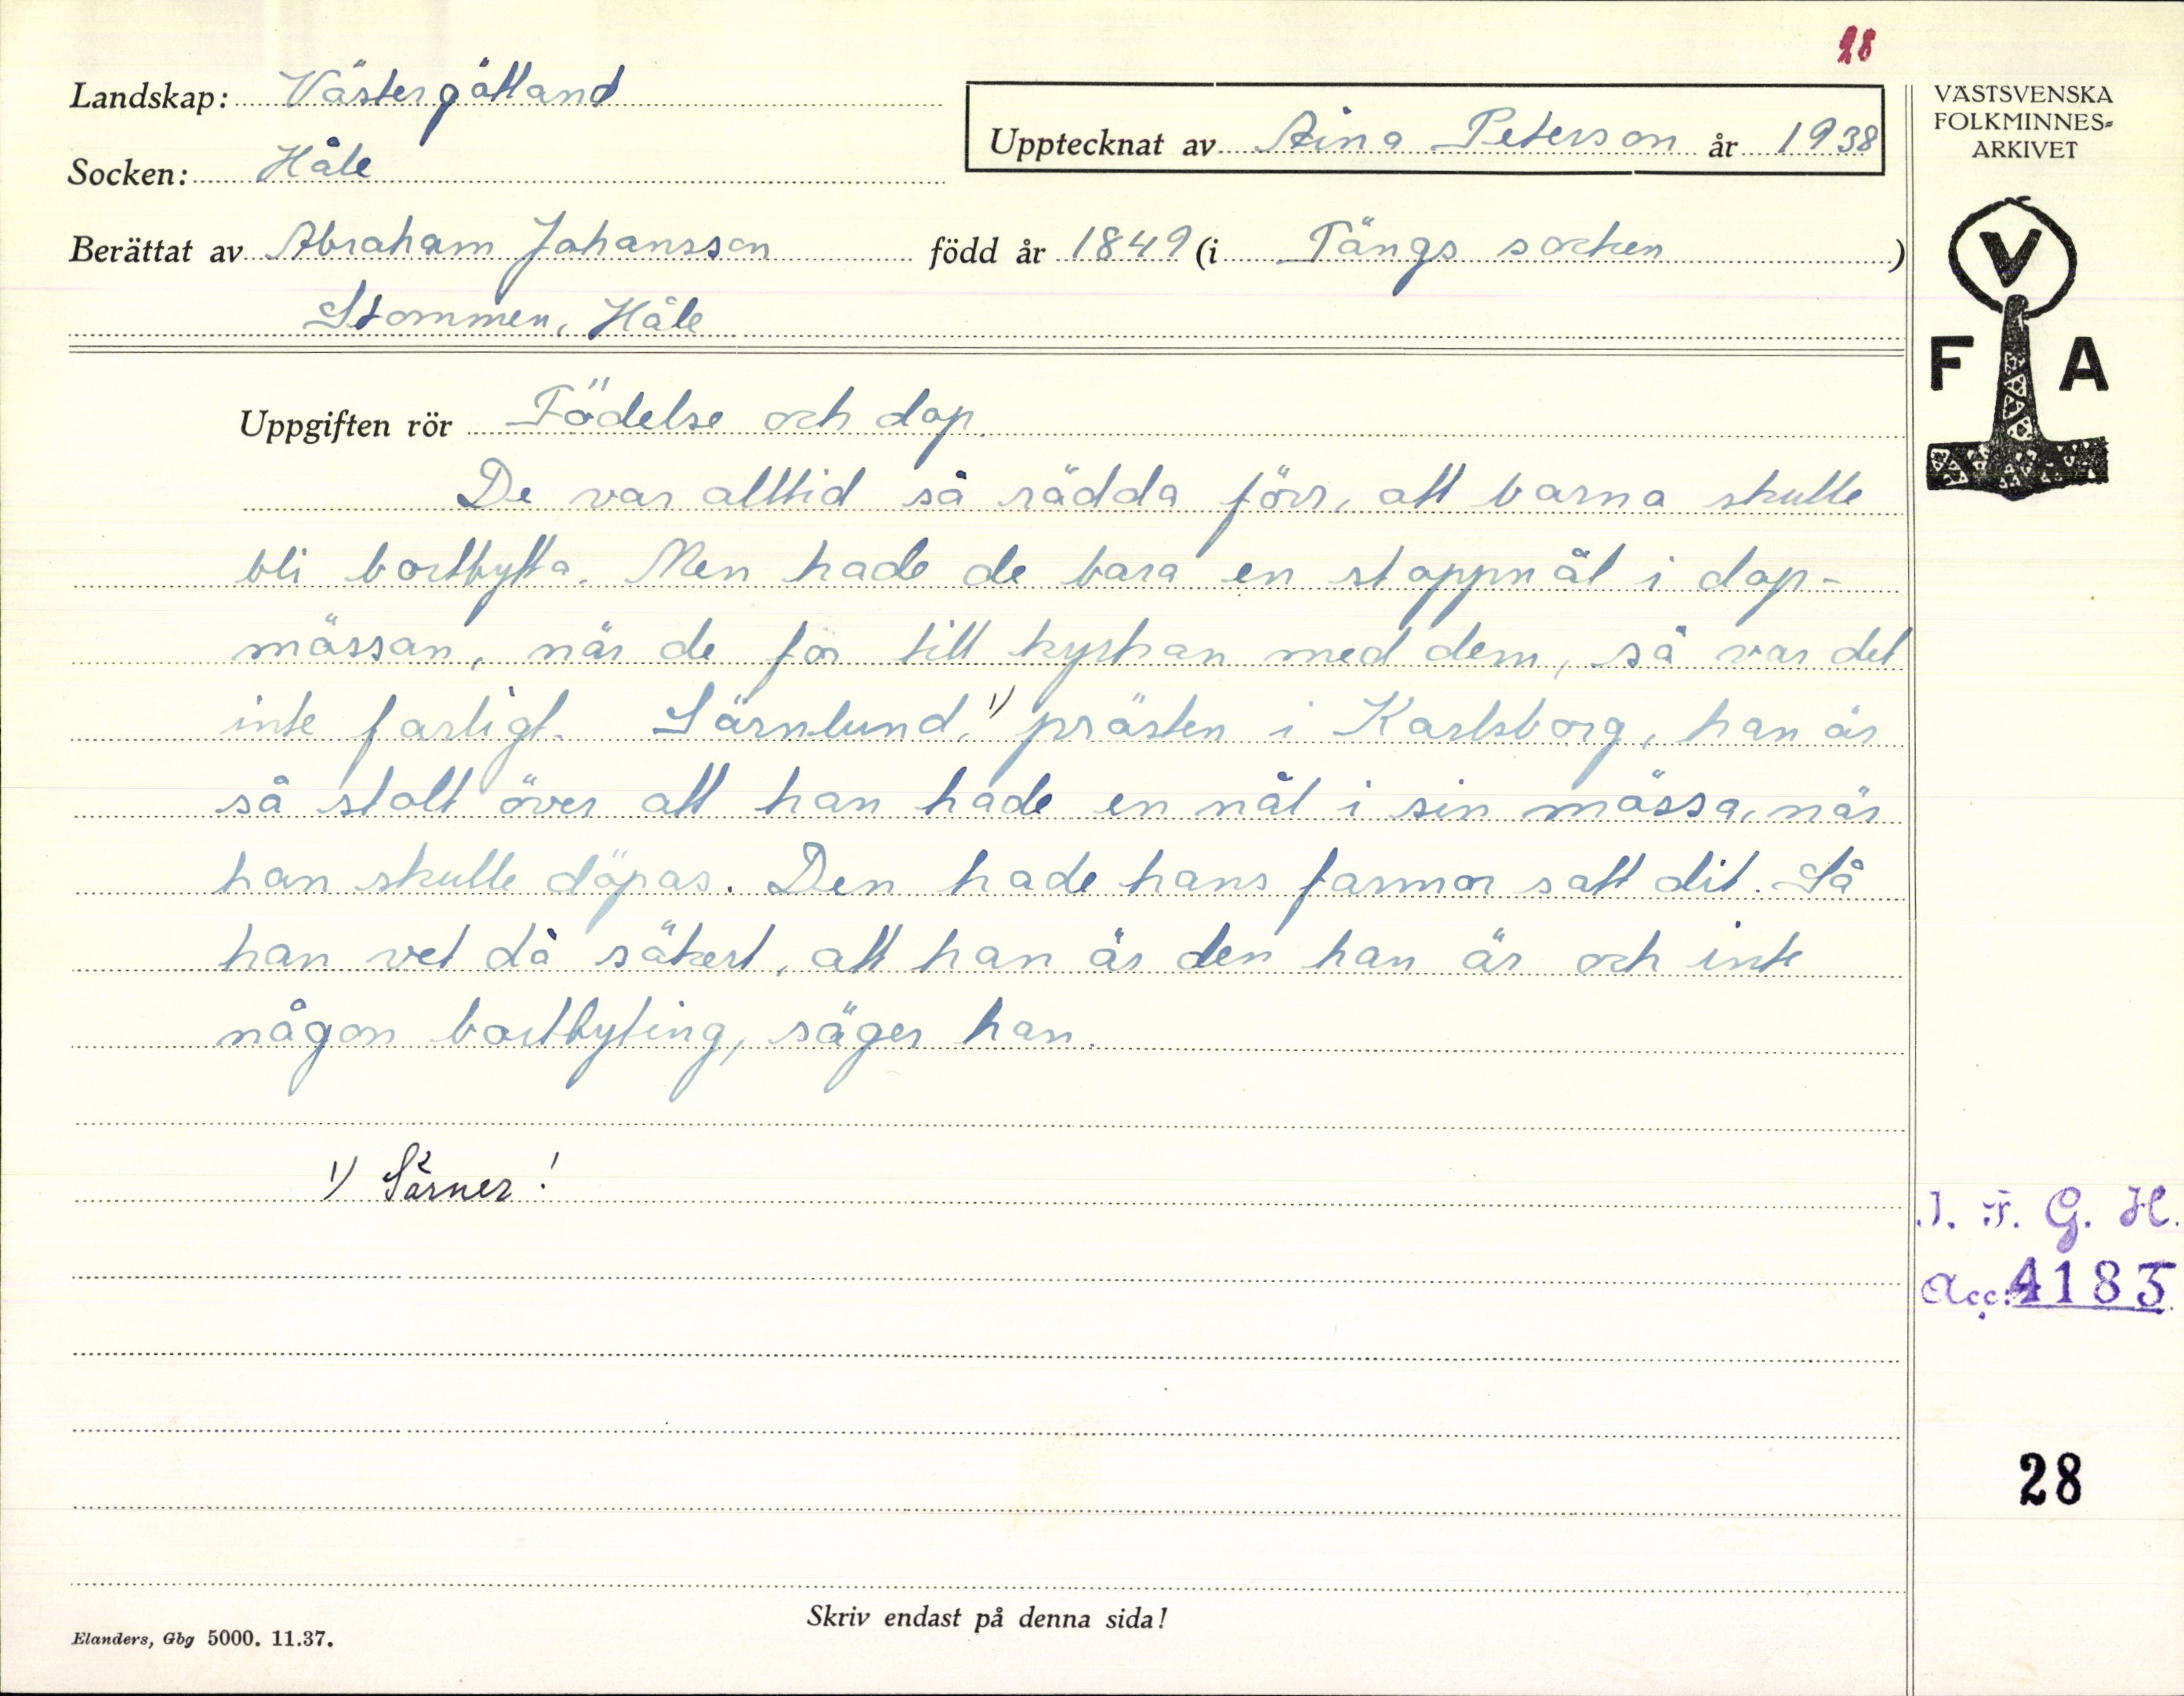 28
Landskap: Västergötland
Upptecknat av Aina Peterson år 1938
Socken: Håle
Berättat av Abraham Johansson född år 1849 (i Tängs socken)
Stommen, Håle
VÄSTSVENSKA
FOLKMINNES-
ARKIVET
V
F A
Uppgiften rör Födelse och dop.
De var alltid så rädda förr, att barna skulle
bli bortbytta. Men hade de bara en stoppnål i dop-
mössan, när de för till kyrkan med dem, så var det
inte farligt. Särnlund,1) prästen i Karlsborg, han är
så stolt över att han hade en nål i sin mössa, när
han skulle döpas. Den hade hans farmor satt dit. Så
han vet då säkert, att han är den han är och inte
någon bortbyting, säger han.
1) Särner!
I. F. G. H.
Acc: 4183
28
Skriv endast på denna sida!
Elanders, Gbg 5000. 11.37.